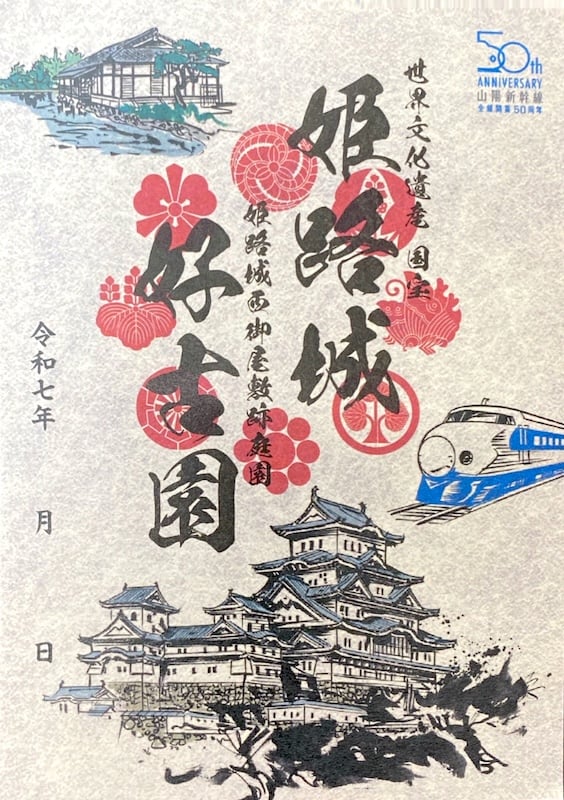 50th
ANNIVERSARY
山陽新幹線
全線開業50周年
世界文化遺産 国宝
姫路城
姫路城西御屋敷跡庭園
好古園
令和七年 月 日